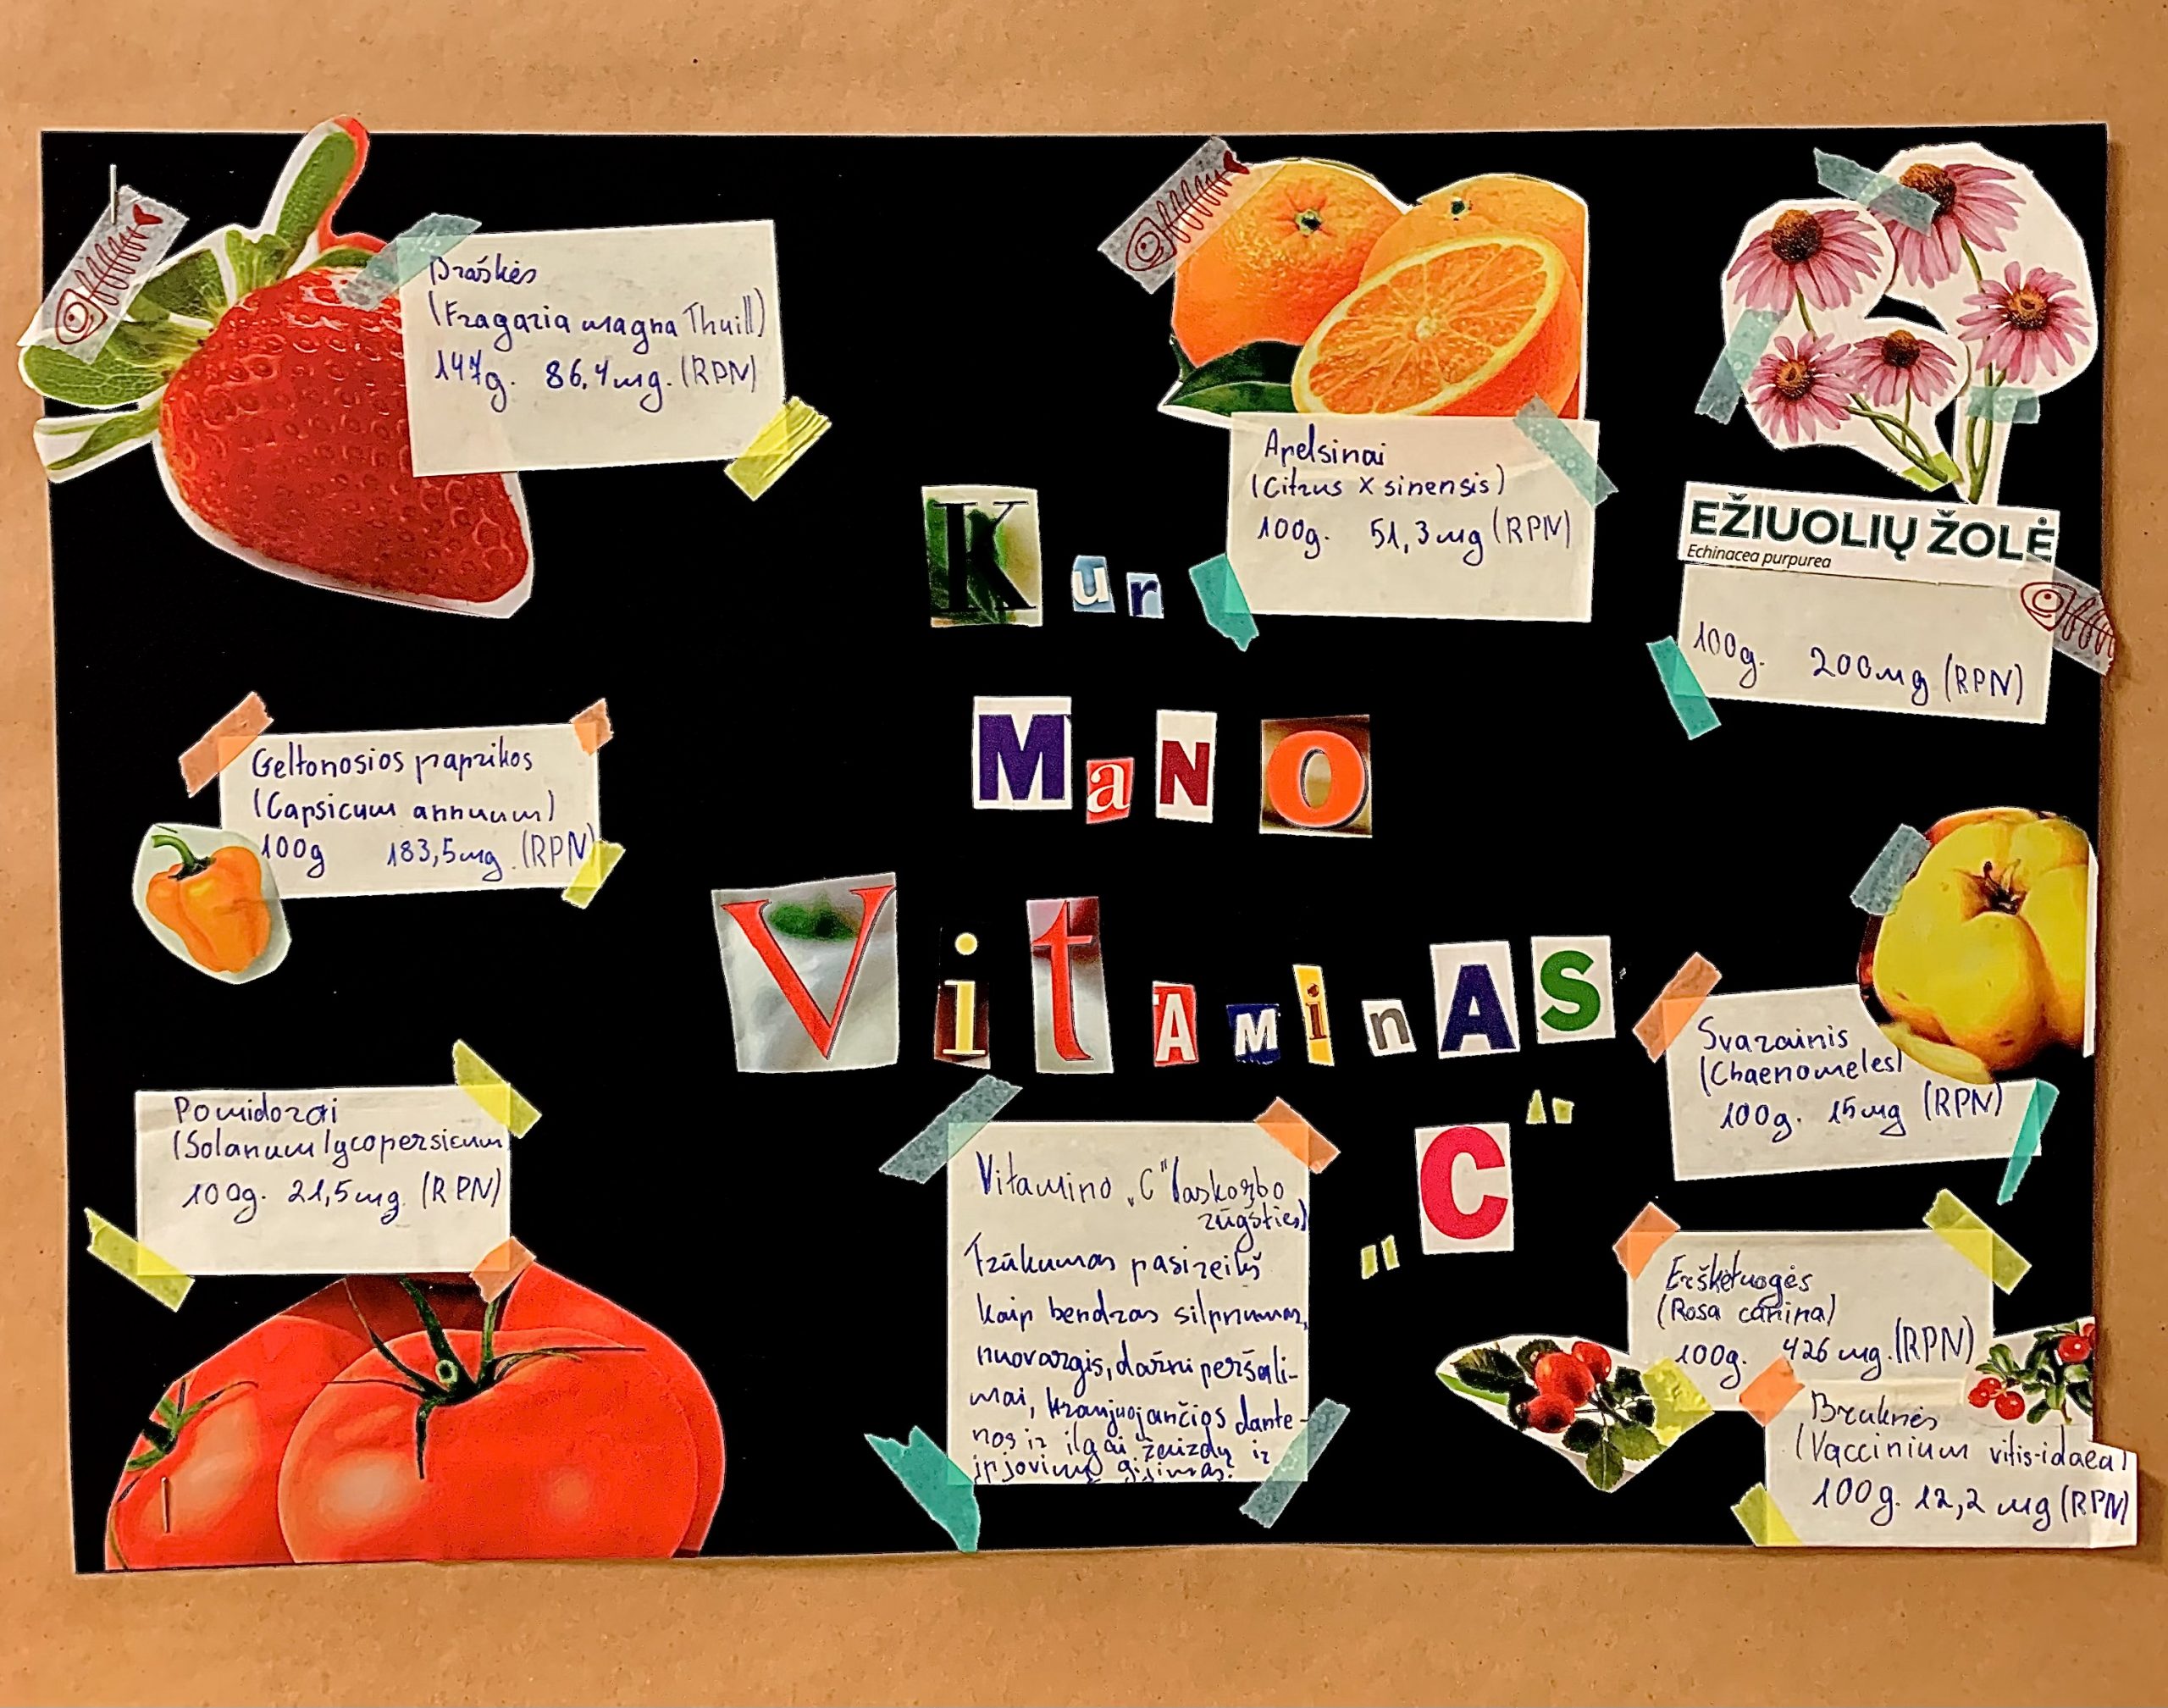 Braškės
(Fragaria magna Thuill)
147g. 86,4mg. (RPN)
Apelsinai
(Citrus x sinensis)
100g. 51,3mg (RPN)
EŽIUOLIŲ ŽOLĖ
Echinacea purpurea
100g. 200mg (RPN)
Kur
MaNO
VitAMinAS
„C"
Geltonosios paprikos
(Capsicum annuum)
100g 183,5mg. (RPN)
Svarainis
(Chaenomeles)
100g. 15mg (RPN)
Pomidorai
(Solanum lycopersicum
100g. 21,5mg. (RPN)
Vitamino „C" (askorbo
rūgšties)
Trūkumas pasireikš
kaip bendras silpnumas,
nuovargis, dažni peršali-
mai, kraujuojančios dante-
nos ir ilgai žaizdų ir
įpjovimų gijimas.
Erškėtuogės
(Rosa canina)
100g. 426 mg. (RPN)
Bruknės
(Vaccinium vitis-idaea)
100g. 12,2 mg (RPN)